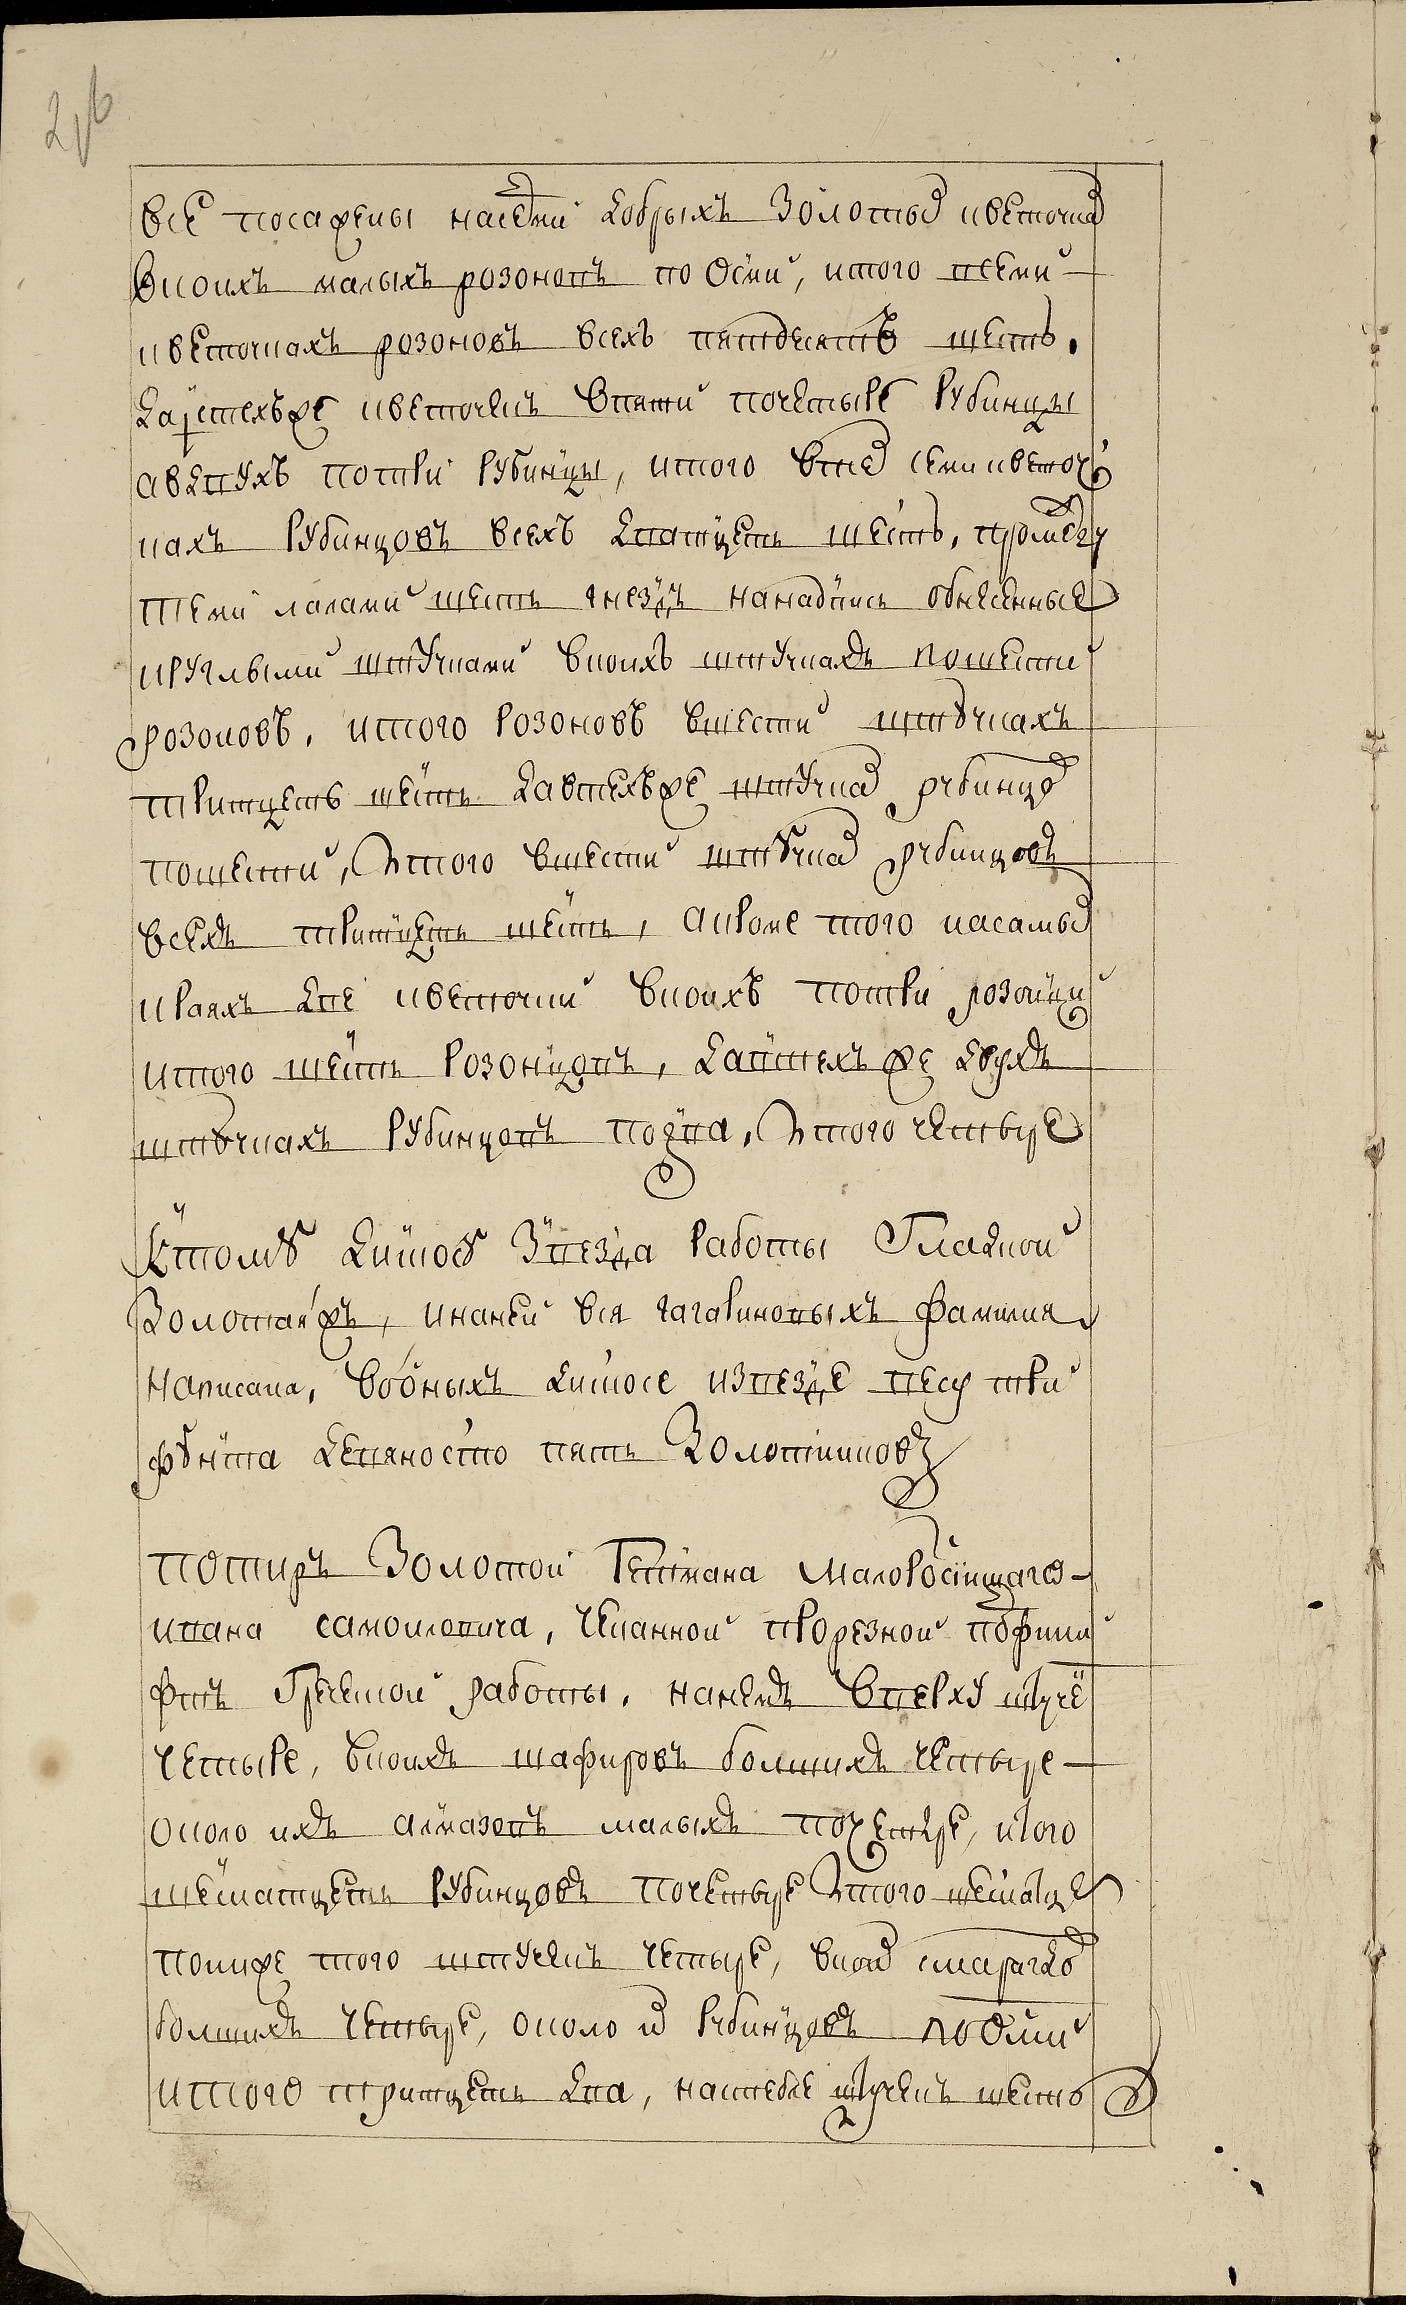 2об
все посажены насеми добрыхъ золотыхъ цветочках
вкоихъ малыхъ розоновъ по осми, итого всеми
цветочкахъ розоновъ всехъ пятдесятъ шесть.
да втехъже цветочкахъ впяти почетыре рубинцы
авдвухъ потри рубинцы, итого втех семи цветоч
кахъ рубинцовъ всехъ дватцеть шесть, промежду
теми лалами шесть гнездъ нанадпись обнесенные
круглыми штучками вкоихъ штучкахъ пошести
розоновъ, итого розоновъ вшести штучкахъ
тритцеть шесть да втехъже штучках рубинцов
пошести, итого вшести штучках рубинцовъ
всехъ тритцеть шесть, акроме того насамых
краяхъ две цветочки вкоихъ потри розонци
итого шесть розонцовъ, да втехъ же двухъ
штучкахъ рубинцовъ подва, итого четыре
Ктому дискосу звезда работы гладкой
золотаяжъ, инаней вся гагариновыхъ фамилия
написана, вооныхъ дискосе извезде весу три
фунта девяносто пять золотниковъ
потиръ золотой гетмана малоросиискаго
ивана самоиловича, чеканной прорезной пофини
фтъ греческой работы, нанемъ вверху штучек
четыре, вкоихъ шафировъ болшихъ четыре
около ихъ алмазовъ малыхъ почетыре, итого
шеснатцеть рубинцовъ почетыре итого шеснатце
пониже того штучекъ четыре, вкоих смарагдов
болшихъ четыре, около их рубинцовъ поосми
итого тритцеть два, настебле штучекъ шесть